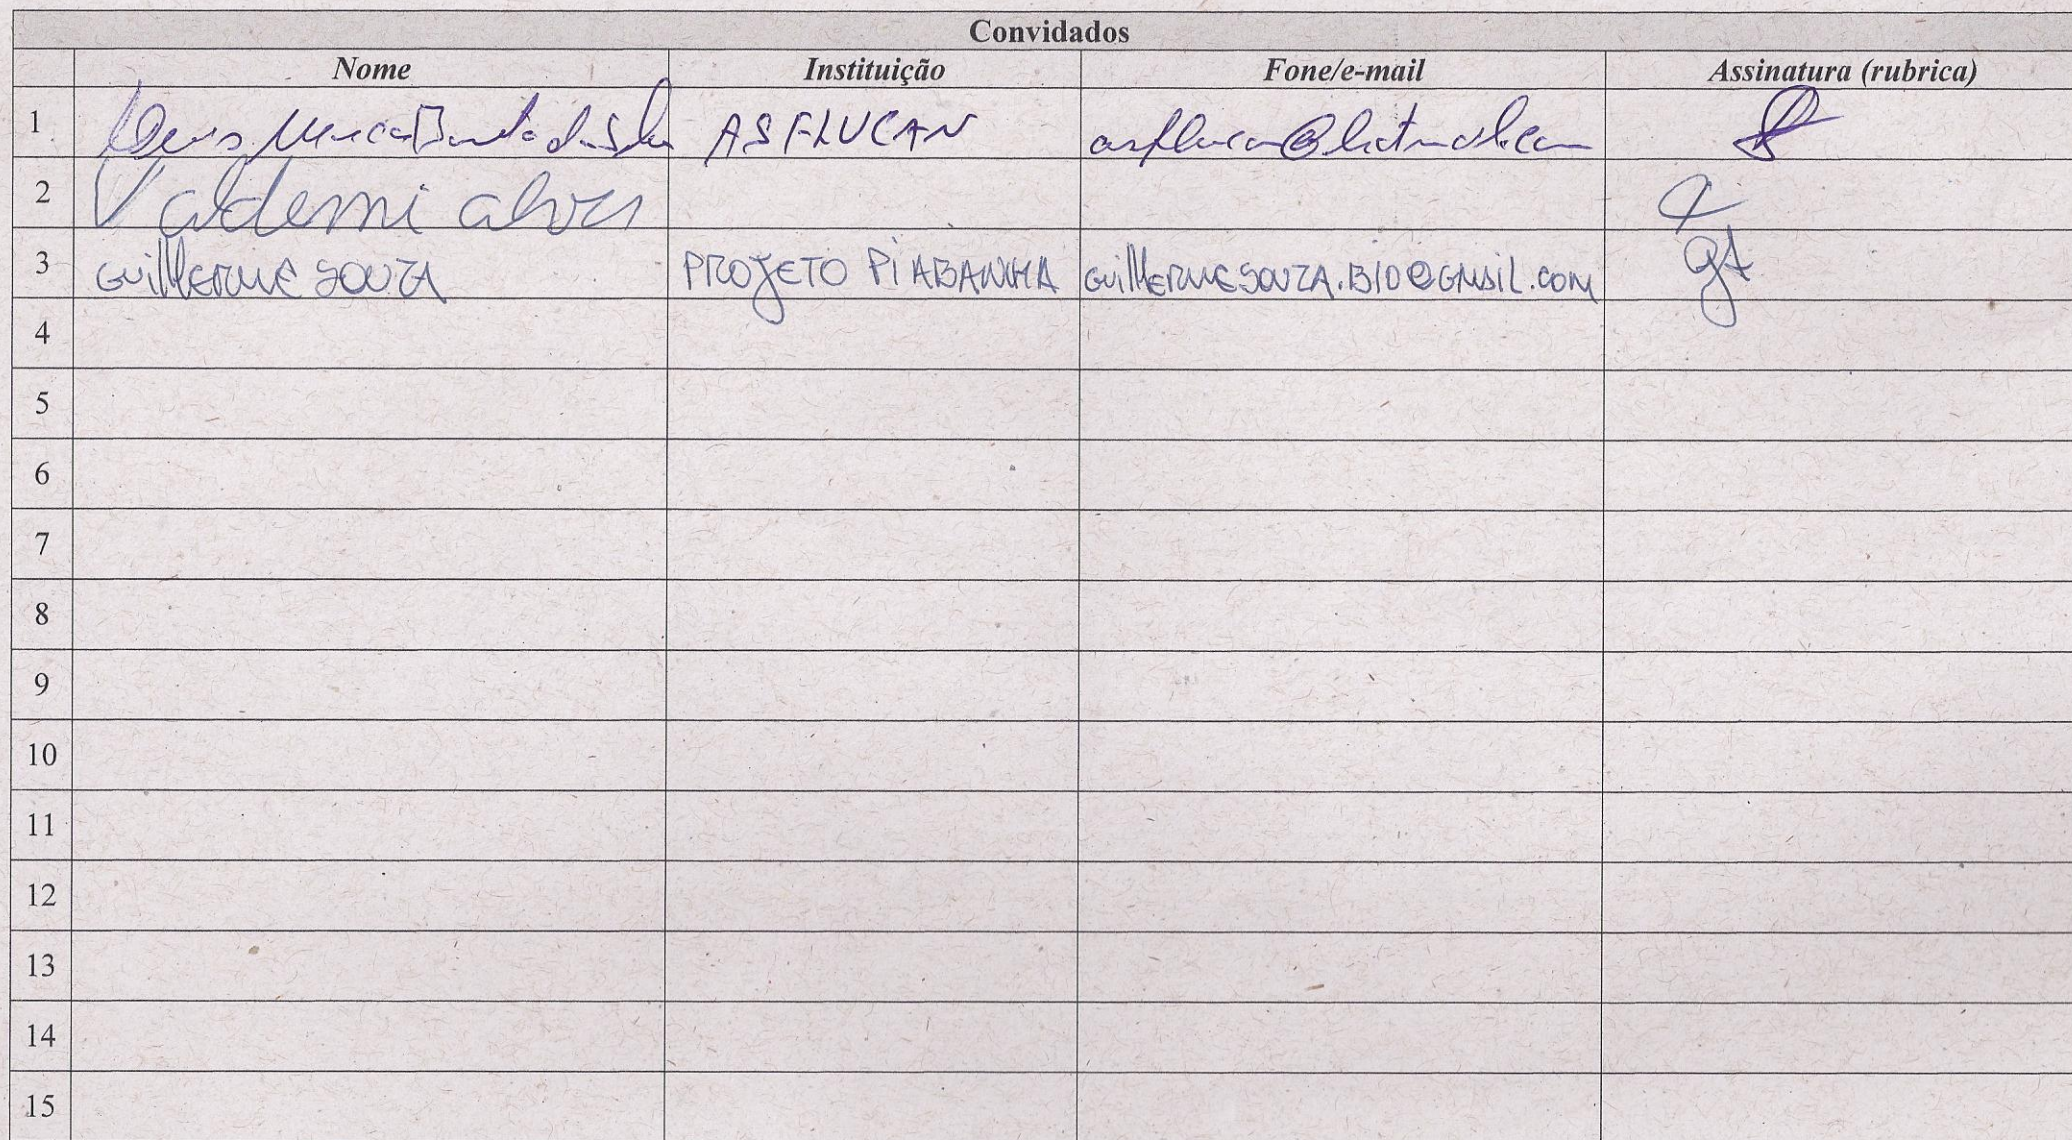 Convidados
Nome Instituição Fone/e-mail Assinatura (rubrica)
1 da Silva ASFLUCAN asflucan@hotmail.com
2 Valdemi alves
3 GUILHERME SOUZA PROJETO PIABANHA GUILHERMESOUZA.BIO@GMAIL.COM
4
5
6
7
8
9
10
11
12
13
14
15